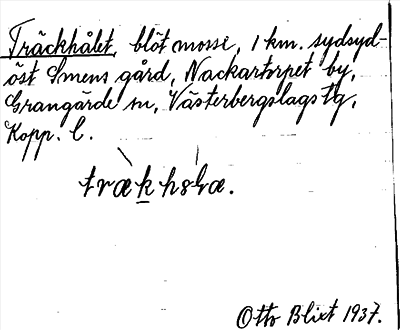 Träckhålet, blöt mosse, 1 km. sydsyd-
öst Smens gård, Nackartorpet by,
Grangärde sn, Västerbergslags tg,
Kopp. l.
trækhsla.
Otto Blixt 1937.